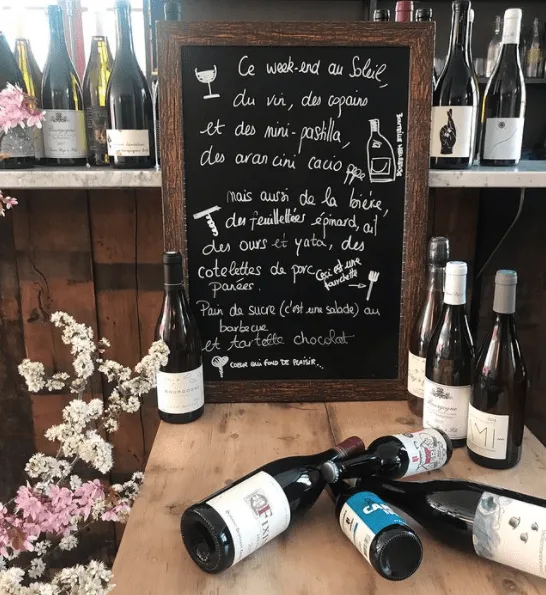 Ce week-end au Soleil,
du vin, des copains
et des mini-pastilla,
des arancini cacio
mais aussi de la bière,
des feuilletées épinard, ail
des ours et yata, des
cotelettes de porc
panées.
Ceci est une
fourchette
Pain de sucre (c'est une salade) au
barbecue
et tartelette chocolat
COEUR QUI FOND DE PLAISIR...
BOURGOGNE
Bourgogne
MI-